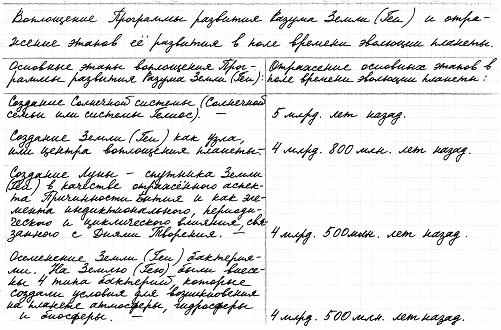 Воплощение Программы развития Разума Земли (Геи) и отра-
жение этапов её развития в поле времени эволюции планеты.
Основные этапы воплощения Прог-
раммы развития Разума Земли (Геи):
Отражение основных этапов в
поле времени эволюции планеты:
Создание Солнечной системы (Солнечной
семьи или системы Гелиос). —
5 млрд. лет назад.
Создание Земли (Геи) как узла,
или центра воплощения планеты —
4 млрд. 800 млн. лет назад.
Создание Луны – спутника Земли
(Геи) в качестве отражённого аспек-
та Причинности Бытия и как эле-
мента индиктионального, периоди-
ческого и циклического влияния, свя-
занного с Днями Творения. —
4 млрд. 500 млн. лет назад.
Осеменение Земли (Геи) бактерия-
ми. На Землю (Гею) были внесе-
ны 4 типа бактерий, которые
создали условия для возникновения
на планете атмосферы, гидросферы
и биосферы. —
4 млрд. 500 млн. лет назад.